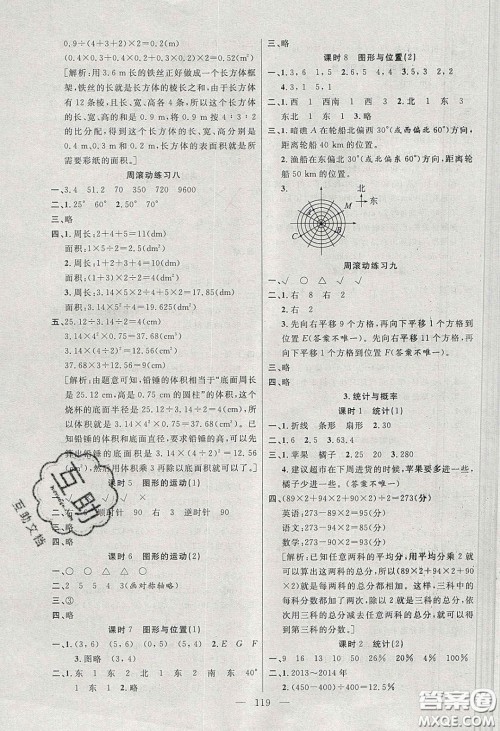 0.9÷(4+3+2)×2=0.2(m)
(0.4×0.3+0.4×0.2+0.3×0.2)×2=0.52(m²)
[解析:用 3.6 m 长的铁丝正好做成一个长方体框
架,铁丝的长度是长方体的棱长之和,由于长方
体有 12 条棱,长、宽、高各 4 条,所以长方体的一
组长、宽、高的和是 0.9 m,然后将 0.9 m 按 4∶3∶2
的比分配,得出长方体的长、宽、高分别是
0.4 m,0.3 m,0.2 m,长方体的表面积就是所
需要彩纸的面积。]
周滚动练习八
一、3.4 51.2 70 350 15000 2.4
二、1. 25° 60° 2. 50° 70°
三、略
四、1. 周长:2+4+5=11(dm)
面积:1×5÷2=2.5(dm²)
2. 周长:3+2+6+2=13(dm)
面积:(3+6)×1÷2=4.5(dm²)
3. 周长:3.14×5÷2+5×2=17.85(dm)
面积:3.14×5²÷4=19.625(dm²)
五、25.12÷3.14÷2=4(cm)
3.14×4²×0.75=37.68(cm³)
37.68×3÷(3.14×2²)=9(cm)
[解析:由题意可知,铅锤的体积相当于“底面周长
是 25.12 cm,高是 0.75 cm 的圆柱”的体积,这个
烧杯的底面半径是 25.12÷3.14÷2=4(cm),所
以铅锤的体积是 3.14×4²×0.75=37.68(cm³),
用铅锤的体积乘 3 再除以底面积就可以了。]
课时 5 图形的运动(1)
三、略
四、略
课时 6 图形的运动(2)
二、2 5 5 4 3(画对称轴略)
三、③
四、略
课时 7 图形与位置(1)
2. E G F
3. 图略
119
三、略
课时 8 图形与位置(2)
一、1. 3,6 1,5 2. 6,5 4,3 3. 1
二、1. 西 1 西南 1 西 3 西北 1 北 1
三、1. 暗礁 A 在轮船北偏西 30°(或西偏北 60°),
距离轮船 40 km 的位置。
2. 渔船在东偏北 30°(或北偏东 60°),距离轮
船 50 km 的位置。
3.
北
东
M
A
C
B
周滚动练习九
一、√ ○ √ √ ○ ○
二、1. 右 8 右 2
2. 右
三、2. 先向右平移 9 个方格,再向下平移 1 个方格到
位置 E(答案不唯一)
3. 先向右平移 6 个方格,再向下平移 1 个方格到
位置 D(答案不唯一)
四、略
3. 统计与概率
课时 1 统计(1)
一、1. 折线 条形 扇形 2. 30
二、1. 2 2. 5 3. 63.4
三、1. 苹果 橘子 2. 25 20 3. 80
4. 建议超市在下周进货的时候,苹果要多进一些,
橘子少进一些。(答案不唯一)
四、(89×2+94×2+90×2)÷2=273(分)
英语:273-89×2=95(分)
语文:273-94×2=85(分)
数学:273-90×2=93(分)
[解析:已知任意两科的平均分,用平均分乘 2 就可
以算出这两科的总分,所以(89×2+94×2+90×2)
就是三个两科的总分都相加了,这里面,三科中的
每科都加了两次,除以 2,就是三科的总分,然后总
分依次减去任意两科的总分就是另外一科的
成绩。]
课时 2 统计(2)
一、9 16 13 50 30 12 24%
二、1. 2013~2014 年
2. (450-400)÷400=12.5%
互助
互助文档
答案圈
MXQE.COM